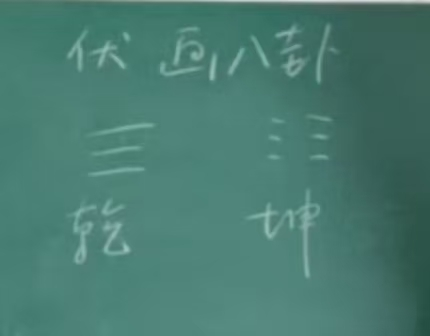 伏 画八卦
☰ ☷
乾 坤